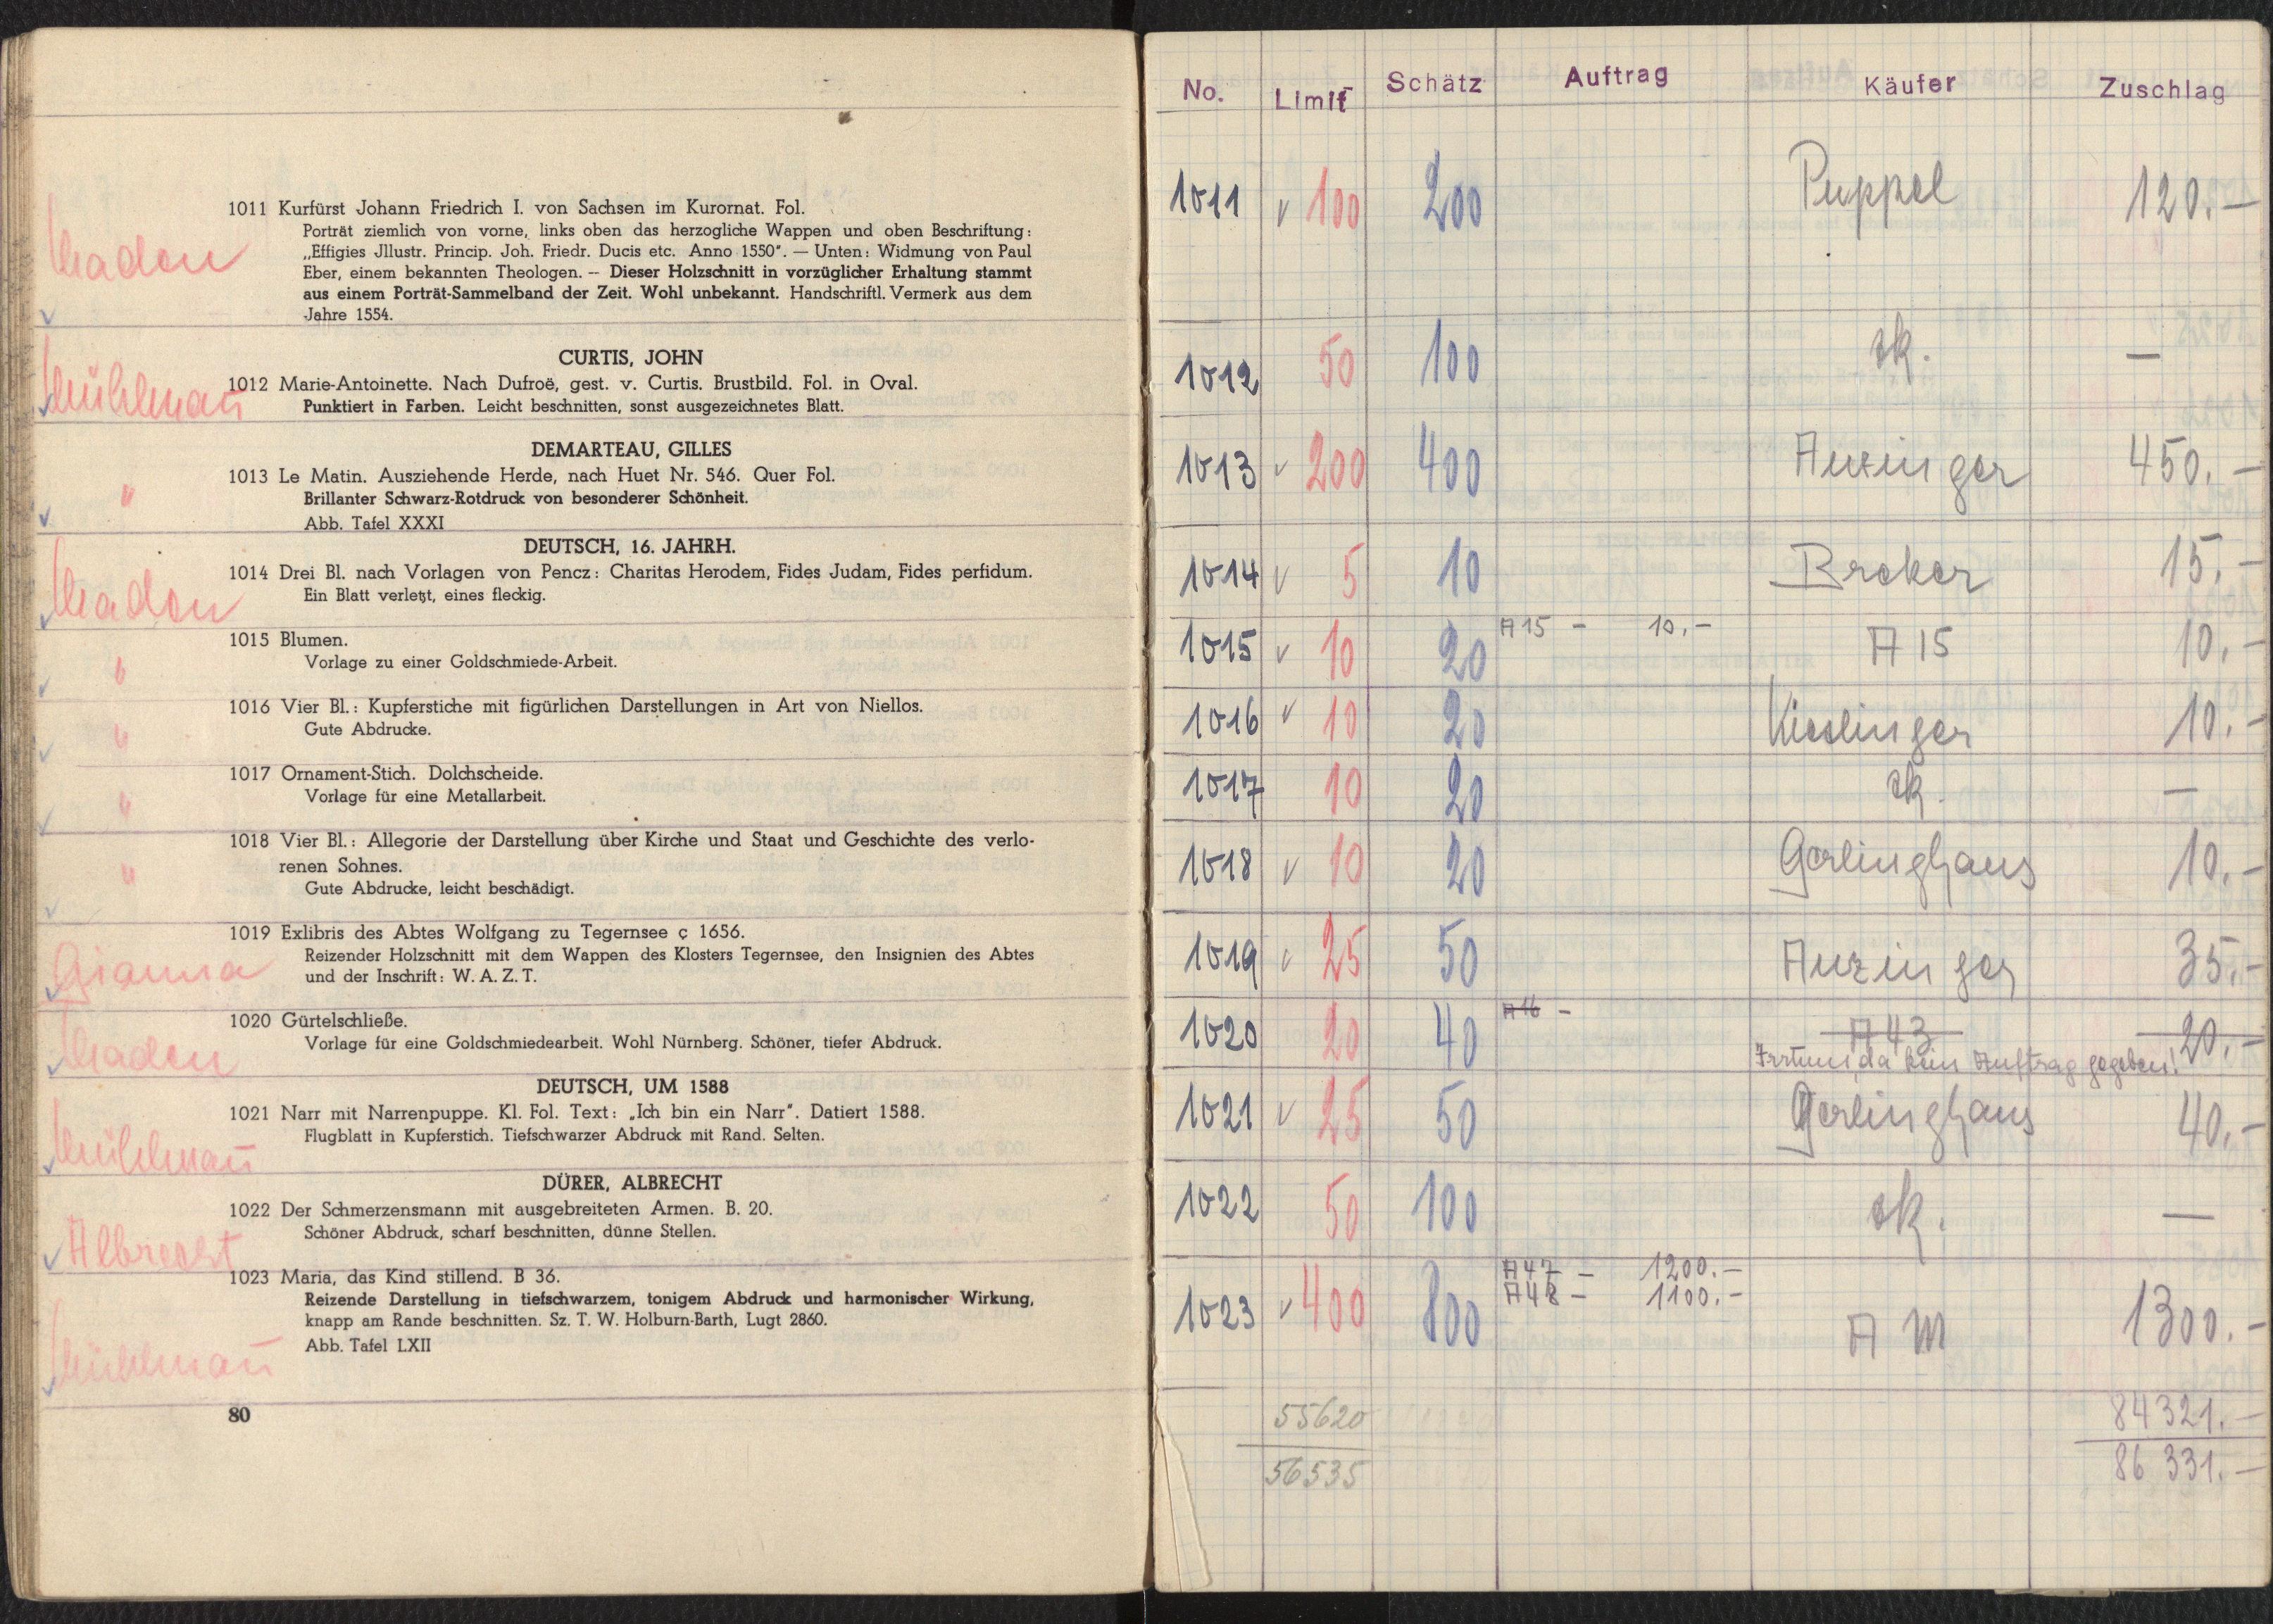 1011 Kurfürst Johann Friedrich I. von Sachsen im Kurornat. Fol.
Porträt ziemlich von vorne, links oben das herzogliche Wappen und oben Beschriftung:
„Effigies Jllustr. Princip. Joh. Friedr. Ducis etc. Anno 1550". — Unten: Widmung von Paul
Eber, einem bekannten Theologen. — Dieser Holzschnitt in vorzüglicher Erhaltung stammt
aus einem Porträt-Sammelband der Zeit. Wohl unbekannt. Handschriftl. Vermerk aus dem
Jahre 1554.
CURTIS, JOHN
Mühlmañ
1012 Marie-Antoinette. Nach Dufroë, gest. v. Curtis. Brustbild. Fol. in Oval.
Punktiert in Farben. Leicht beschnitten, sonst ausgezeichnetes Blatt.
DEMARTEAU, GILLES
1013 Le Matin. Ausziehende Herde, nach Huet Nr. 546. Quer Fol.
Brillanter Schwarz-Rotdruck von besonderer Schönheit.
"
Abb. Tafel XXXI
DEUTSCH, 16. JAHRH.
1014 Drei Bl. nach Vorlagen von Pencz: Charitas Herodem, Fides Judam, Fides perfidum.
Ein Blatt verletzt, eines fleckig.
1015 Blumen.
Vorlage zu einer Goldschmiede-Arbeit.
"
1016 Vier Bl.: Kupferstiche mit figürlichen Darstellungen in Art von Niellos.
Gute Abdrucke.
"
1017 Ornament-Stich. Dolchscheide.
Vorlage für eine Metallarbeit.
"
1018 Vier Bl.: Allegorie der Darstellung über Kirche und Staat und Geschichte des verlo-
renen Sohnes.
"
Gute Abdrucke, leicht beschädigt.
1019 Exlibris des Abtes Wolfgang zu Tegernsee ç 1656.
Reizender Holzschnitt mit dem Wappen des Klosters Tegernsee, den Insignien des Abtes
und der Inschrift: W. A. Z. T.
1020 Gürtelschließe.
Vorlage für eine Goldschmiedearbeit. Wohl Nürnberg. Schöner, tiefer Abdruck.
DEUTSCH, UM 1588
1021 Narr mit Narrenpuppe. Kl. Fol. Text: „Ich bin ein Narr". Datiert 1588.
Flugblatt in Kupferstich. Tiefschwarzer Abdruck mit Rand. Selten.
Mühlmañ
DÜRER, ALBRECHT
1022 Der Schmerzensmann mit ausgebreiteten Armen. B. 20.
Schöner Abdruck, scharf beschnitten, dünne Stellen.
Albrecht
1023 Maria, das Kind stillend. B 36.
Reizende Darstellung in tiefschwarzem, tonigem Abdruck und harmonischer Wirkung,
knapp am Rande beschnitten. Sz. T. W. Holburn-Barth, Lugt 2860.
Abb. Tafel LXII
Mühlmañ
80
No. Limit Schätz Auftrag Käufer Zuschlag
1011 √ 100 200 Puppel 120.—
1012 50 100 zk. —
1013 √ 200 400 Auzinger 450.—
1014 √ 5 10 Breker 15.—
1015 √ 10 20 A 15 — 10.— A 15 10.—
1016 √ 10 20 Kieslinger 10.—
1017 10 20 zk. —
1018 √ 10 20 Gerlinghaus 10.—
1019 √ 25 50 Auzinger 35.—
1020 20 40 A 16 — A 43 20.—
Irrtum, da kein Auftrag gegeben!
1021 √ 25 50 Gerlinghaus 40.—
1022 50 100 zk. —
A 47 — 1200.—
A 48 — 1100.—
1023 √ 400 800 A M 1300.—
55620 84321.—
56535 86 331.—